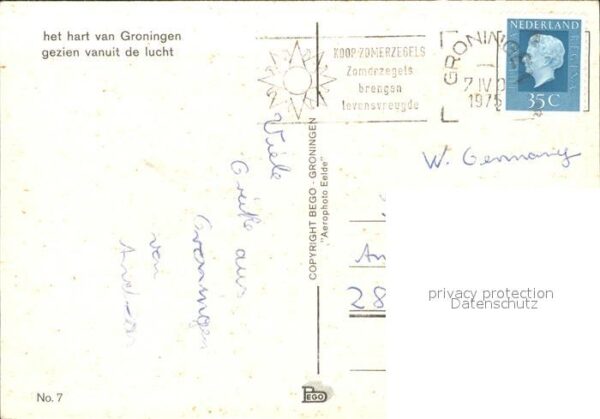 het hart van Groningen
gezien vanuit de lucht
KOOP ZOMERZEGELS
Zomerzegels
brengen
levensvreugde
GRONINGEN
7 IV
1975
NEDERLAND
JULIANA REGINA
35 C
W. Germany
Viele
Grüße aus
Groningen
von
COPYRIGHT BEGO - GRONINGEN
"Aerophoto Eelde"
An
28
privacy protection
Datenschutz
No. 7
BEGO